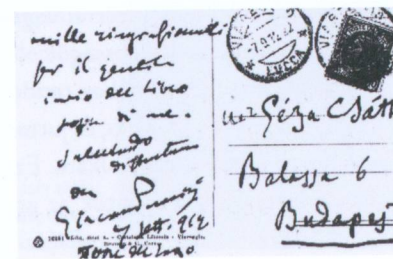 mille ringraziamenti
per il gentile
invio del libro
sopra di me.
Salutando
Giacomo Puccini
7 sett. 912
Torre del Lago
VIAREGGIO
7.9.12
LUCCA
Géza Csáth
Balassa 6
Budapest